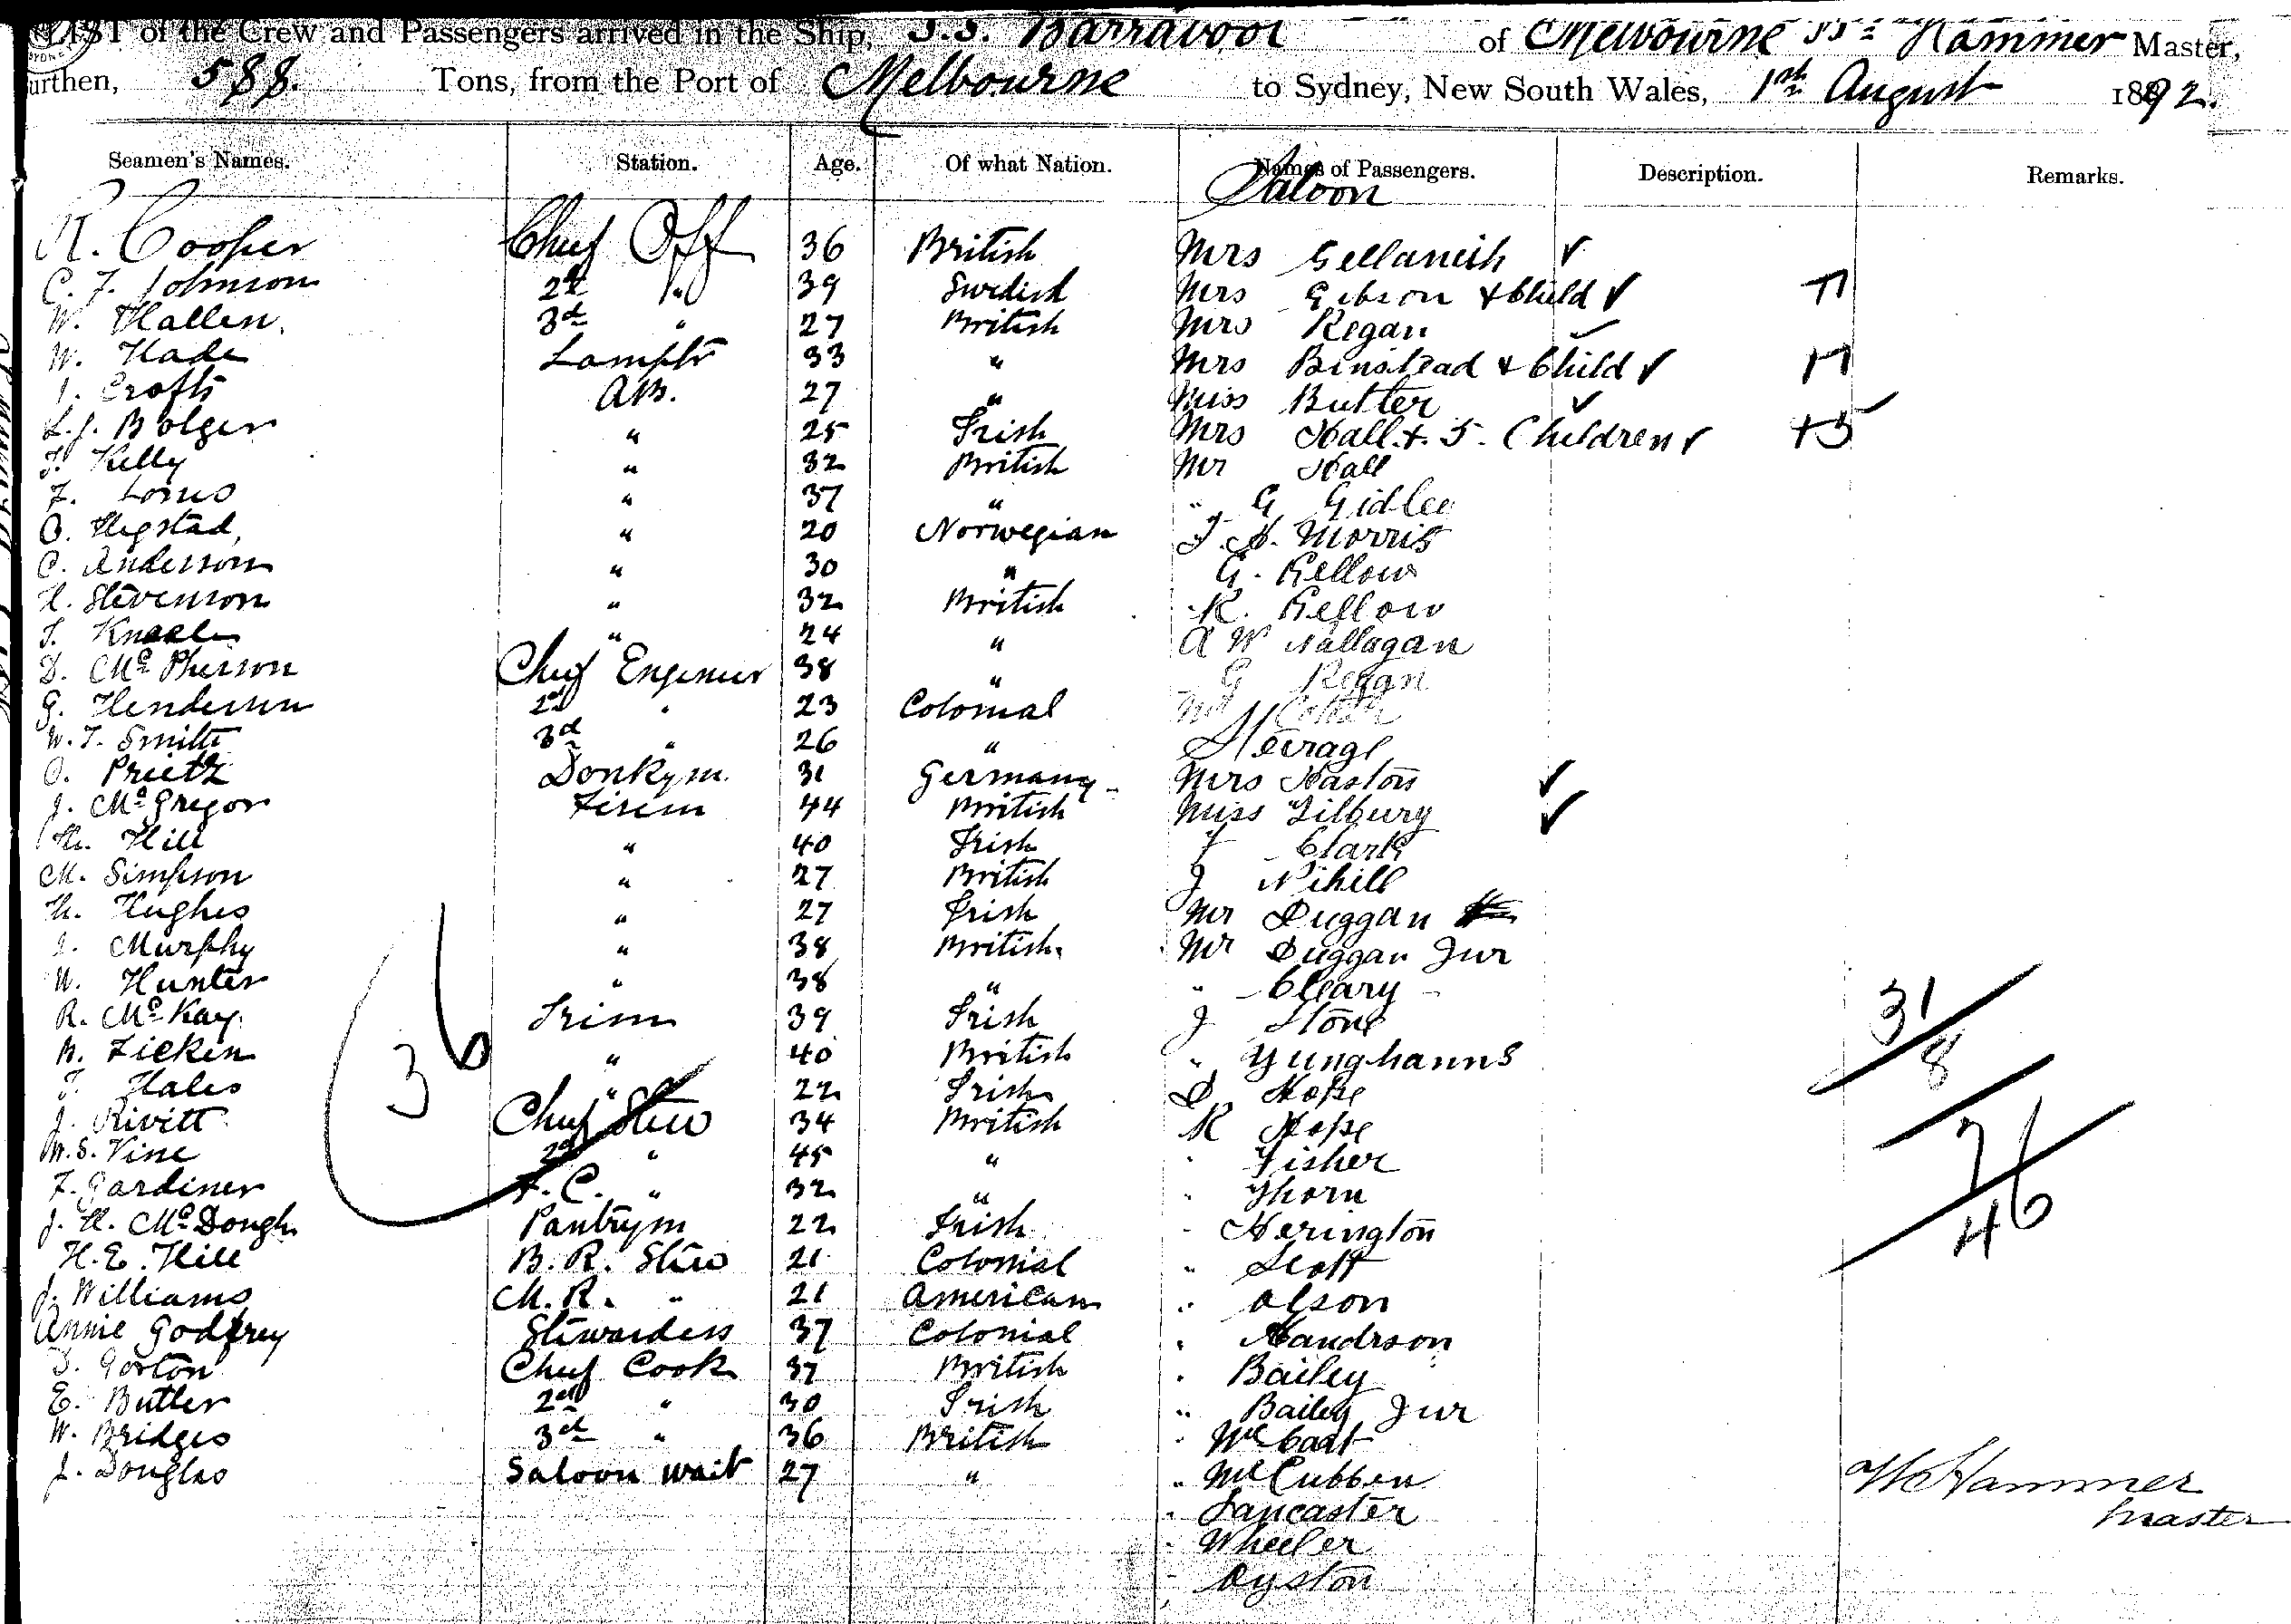 LIST of the Crew and Passengers arrived in the Ship, S.S. Barrabool of Melbourne Hammer Master,
urthen, 588. Tons, from the Port of Melbourne to Sydney, New South Wales, 1st August 1892.
Seamen's Names. Station. Age. Of what Nation. Names of Passengers. Description. Remarks.
Saloon
Cooper Chief Off 36 British Mrs Gellanish ✓
C. F. Johnson 2d " 39 Swedish Mrs Gibson + Child ✓
W. Hallen. 3d " 27 British Mrs Regan
W. Hade Lamptr 33 " Mrs Binstead + Child ✓
J. Crofts A.B. 27 " Miss Butter ✓
L. J. Bolger " 25 Irish Mrs Hall + 5. Children ✓ +5
J. Kelly " 32 British Mr Hall
F. " 37 " " G Gidley
O. Hegstad, " 20 Norwegian J. H. Morris
C. Anderson " 30 " G. Gellow
H. Stevenson " 32 British R. Gellow
T. " 24 " A W Nallagan
D. McPherson Chief Engineer 38 " G Regan
G. Henderson 2d " 23 Colonial Mr
W. T. Smith 3d " 26 " Steerage
O. Prietz Donkym. 31 Germany Mrs Haston ✓
J. McGregor Firem 44 British Miss Tilbury ✓
Hill " 40 Irish Clark
M. Simpson " 27 British J Nihill
H. Hughes " 27 Irish Mr Duggan
J. Murphy " 38 British. Mr Duggan Jur
W. Hunter " 38 " " Cleary
R. McKay. Trim 39 Irish J Stone
B. Ficken " 40 British " Yunghanns
T. Hales " 22 Irish D Hope
J. Rivett Chief Stew 34 British R Hope
W. S. Vine 2d " 45 " " Fisher
F. Gardiner F. C. " 32 " " Thorn
J. H. McDongh Pantrym 22 Irish " Herington
H. E. Hill B. R. Stew 21 Colonial " Scott
J. Williams M. R. " 21 American " Olson
Annie Godfrey Stewardess 37 Colonial " Handrson
T. Gorton Chief Cook 37 British " Bailey
E. Butler 2nd " 30 Irish " Bailey Jur
W. Bridges 3rd " 36 British " McCart
J. Douglas Saloon wait 27 " " McCubben
" Lancaster
" Wheeler
" Oyston
36
31
8
7
46
W Hammer
Master